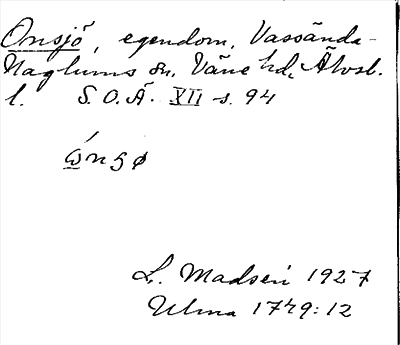 Onsjö, egendom, Vassända-
Naglums sn, Väne hd, Älvsb.
l. S.O.Ä. XII s. 94
ώnsø
L. Madsen 1927
Ulma 1749:12